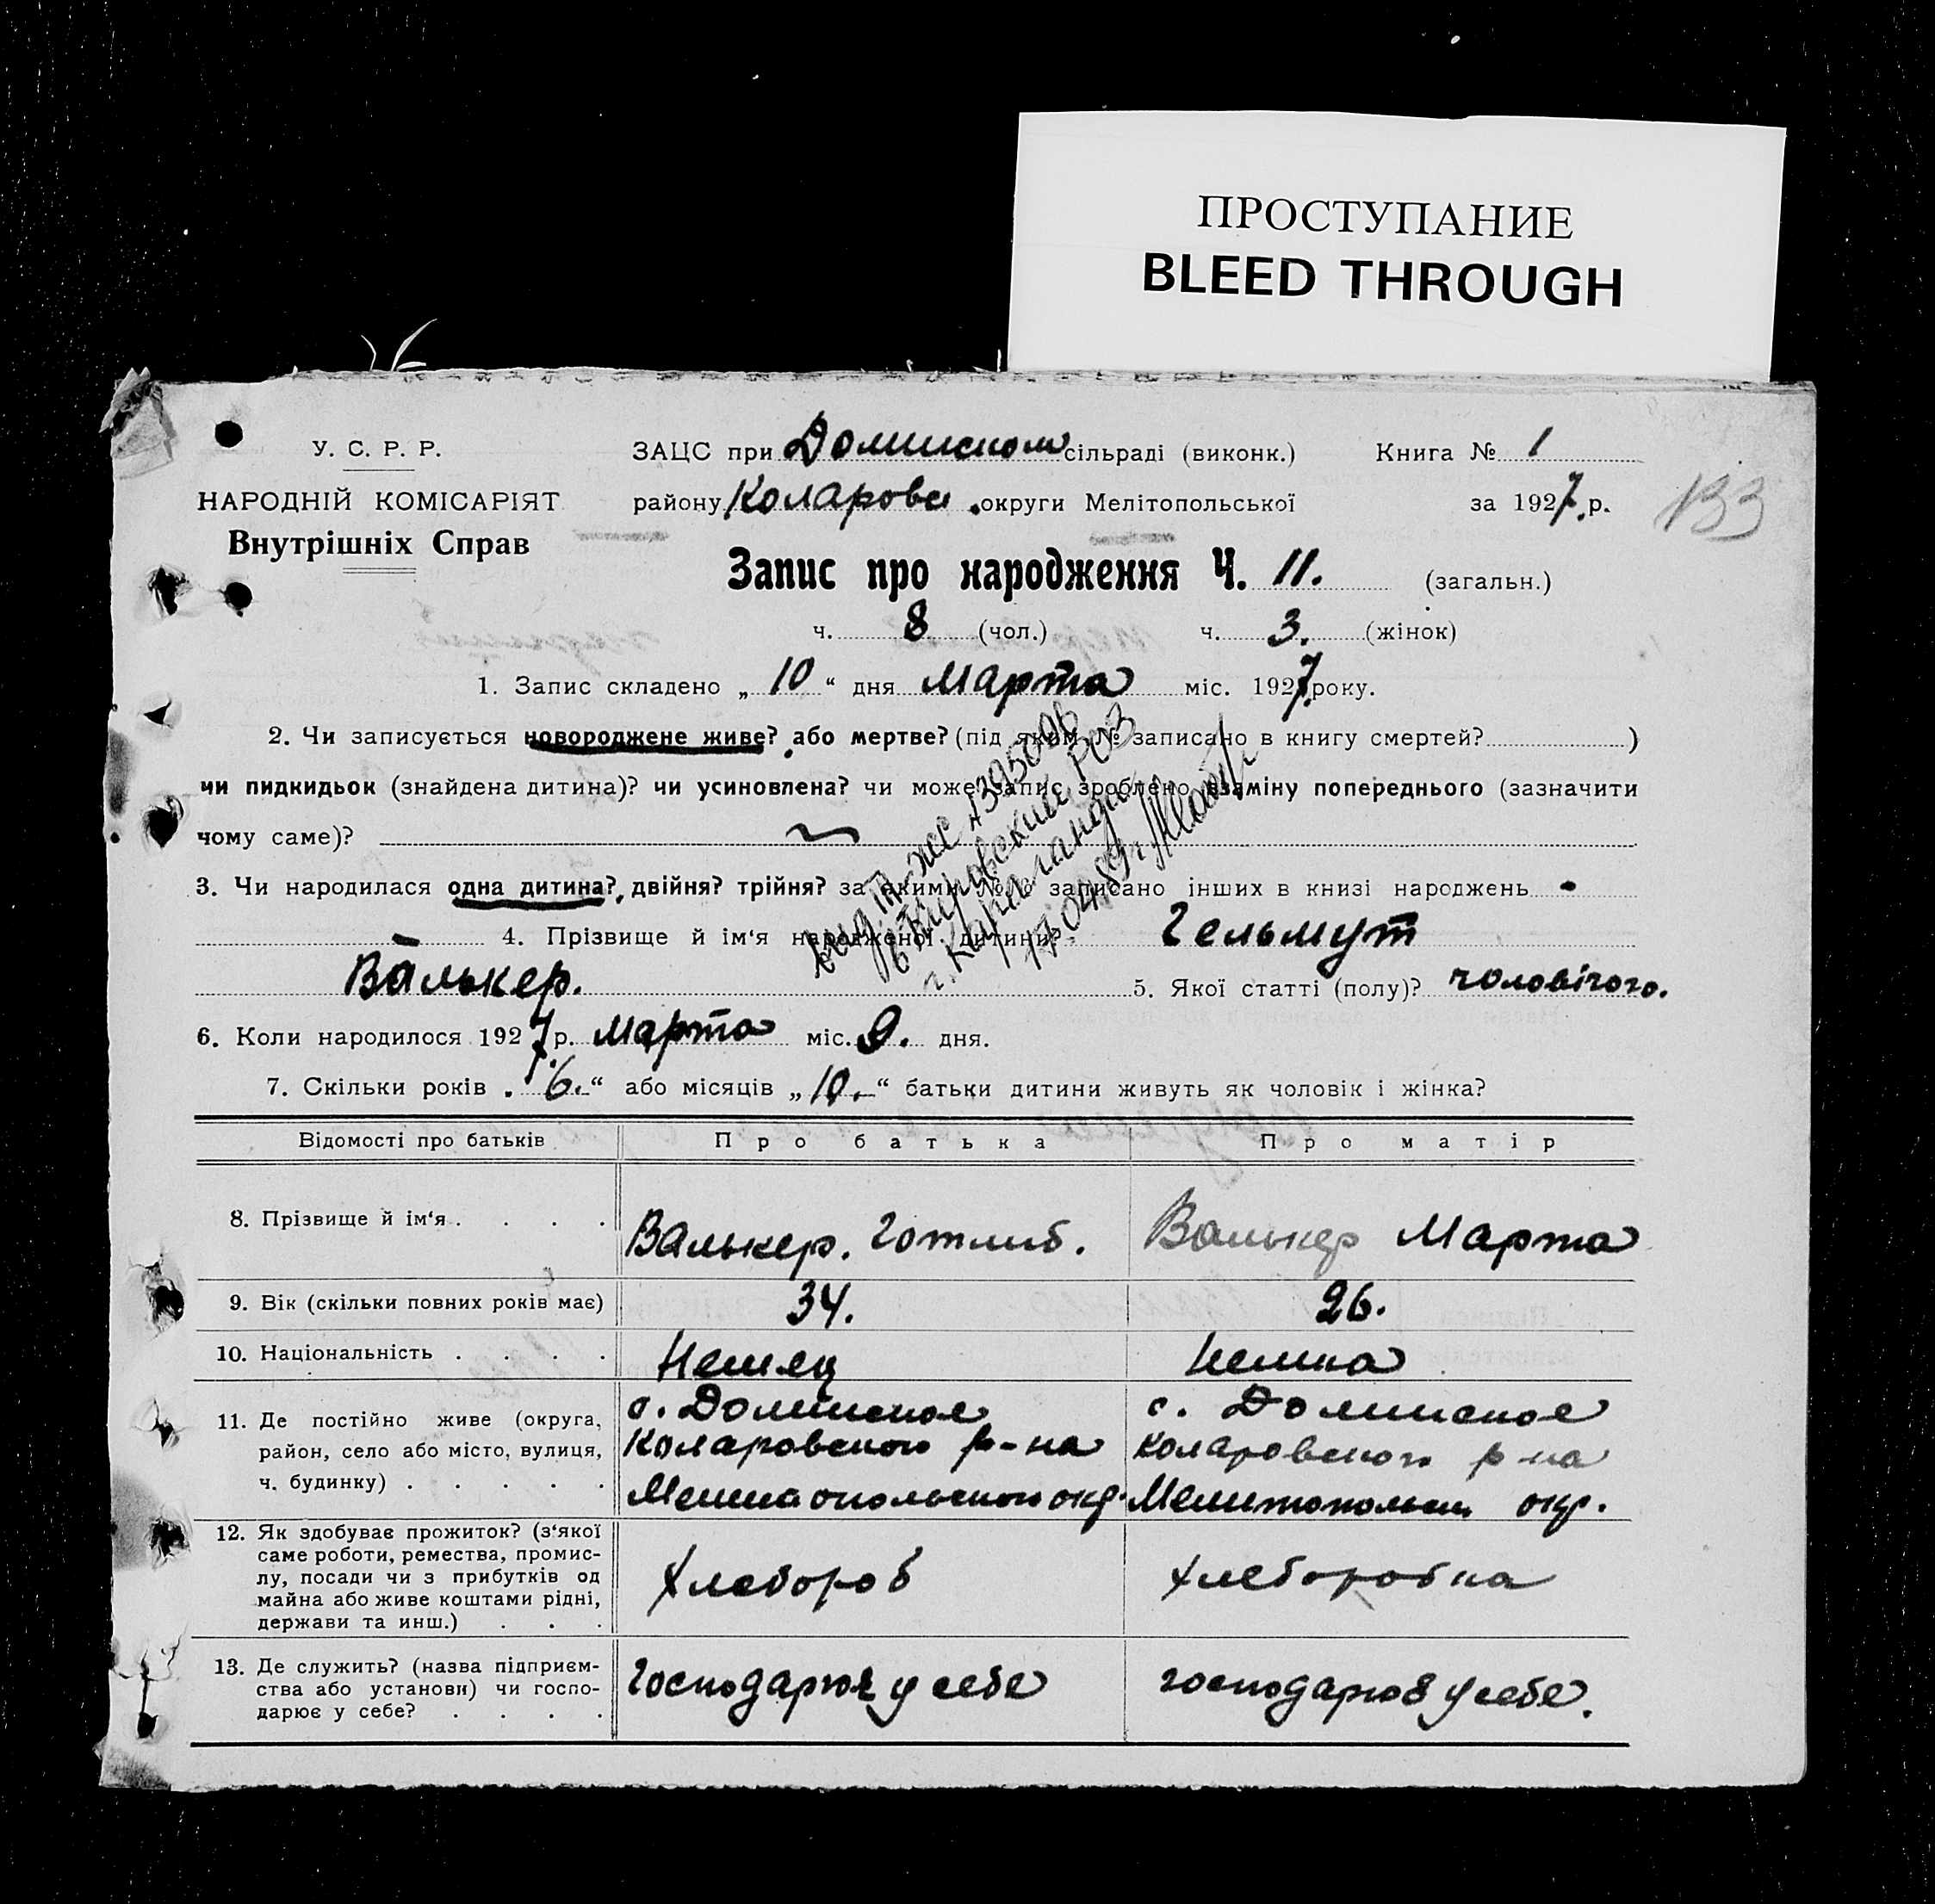 ПРОСТУПАНИЕ
BLEED THROUGH
У. С. Р. Р.
НАРОДНІЙ КОМІСАРІЯТ
Внутрішніх Справ
ЗАЦС при Домиском сільраді (виконк.) Книга № 1
району Коларовс. округи Мелітопольської за 1927. р.
133
Запис про народження Ч. 11. (загальн.)
ч. 8 (чол.) ч. 3. (жінок)
1. Запис складено „ 10 “ дня Марта міс. 1927 року.
2. Чи записується новороджене живе? або мертве? (під яким № записано в книгу смертей? )
чи пидкидьок (знайдена дитина)? чи усиновлена? чи може запис зроблено взаміну попереднього (зазначити
чому саме)?
3. Чи народилася одна дитина?, двійня? трійня? за якими №№ записано інших в книзі народжень -
- 4. Прізвище й ім‘я народженої дитини? Гельмут
Валькер. 5. Якої статті (полу)? чоловічого.
6. Коли народилося 1927 р. Марта міс. 9. дня.
7. Скільки років „ 6. “ або місяців „ 10. “ батьки дитини живуть як чоловік і жінка?
Відомості про батьків Про батька Про матір
8. Прізвище й ім‘я . . . . Валькер. Готлиб. Валькер Марта
9. Вік (скільки повних років має) 34. 26.
10. Національність . . . . Немец Немка
11. Де постійно живе (округа, район, село або місто, вулиця, ч. будинку) . . . . .
с. Домиское Коларовского р-на Мелитопольского окр.
с. Домиское Коларовского р-на Мелитопольск. окр.
12. Як здобуває прожиток? (з‘якої саме роботи, ремества, промислу, посади чи з прибутків од майна або живе коштами рідні, держави та инш.) . . .
Хлебороб хлеборобка
13. Де служить? (назва підприємства або установи) чи господарює у себе? . . . .
господарює у себе господарює у себе.